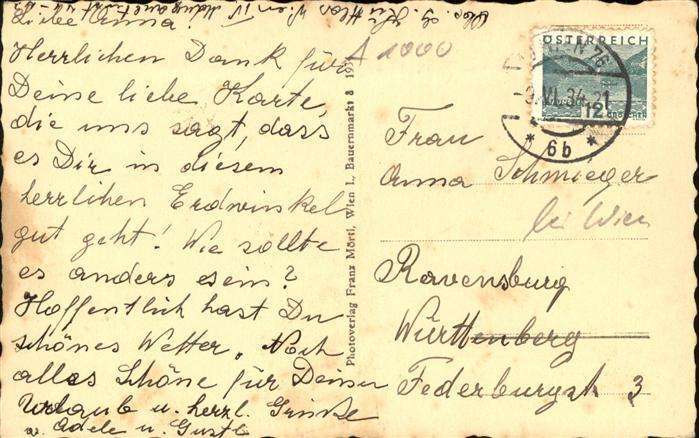 Liebe Anna!
Herrlichen Dank für
Deine liebe Karte,
die uns sagt, dass
es Dir in diesem
herrlichen Erdwinkel
gut geht! Wie sollte
es anders sein?
Hoffentlich hast Du
schönes Wetter. Noch
alles Schöne für Deinen
Urlaub u. herzl. Grüsse
v. Adele u. Gustl
A 1000
Photoverlag Franz Mörtl, Wien I., Bauernmarkt 8
ÖSTERREICH
WIEN 76
9.VI.34
12
* 6b *
Frau
Anna Schmieger
bei Wien
Ravensburg
Württenberg
Federburgstr 3